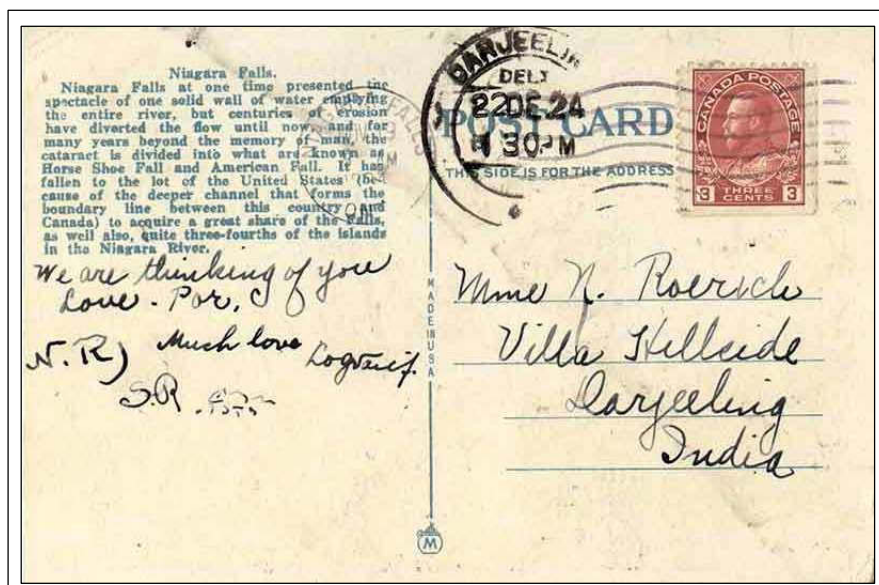 Niagara Falls.
Niagara Falls at one time presented the
spectacle of one solid wall of water emptying
the entire river, but centuries of erosion
have diverted the flow until now, and for
many years beyond the memory of man, the
cataract is divided into what are known as
Horse Shoe Fall and American Fall. It has
fallen to the lot of the United States (be-
cause of the deeper channel that forms the
boundary line between this country and
Canada) to acquire a great share of the Falls,
as well also, quite three-fourths of the islands
in the Niagara River.
We are thinking of you
Love - Por,
N. R)
Much love
S.R
MADE IN USA
M
DARJEELIN
DELY
22DE.24
30PM
POST CARD
THIS SIDE IS FOR THE ADDRESS
CANADA POSTAGE
3 THREE CENTS 3
NIAGARA FALLS
ONT
Mme N. Roerich
Villa Hillside
Darjeeling
India